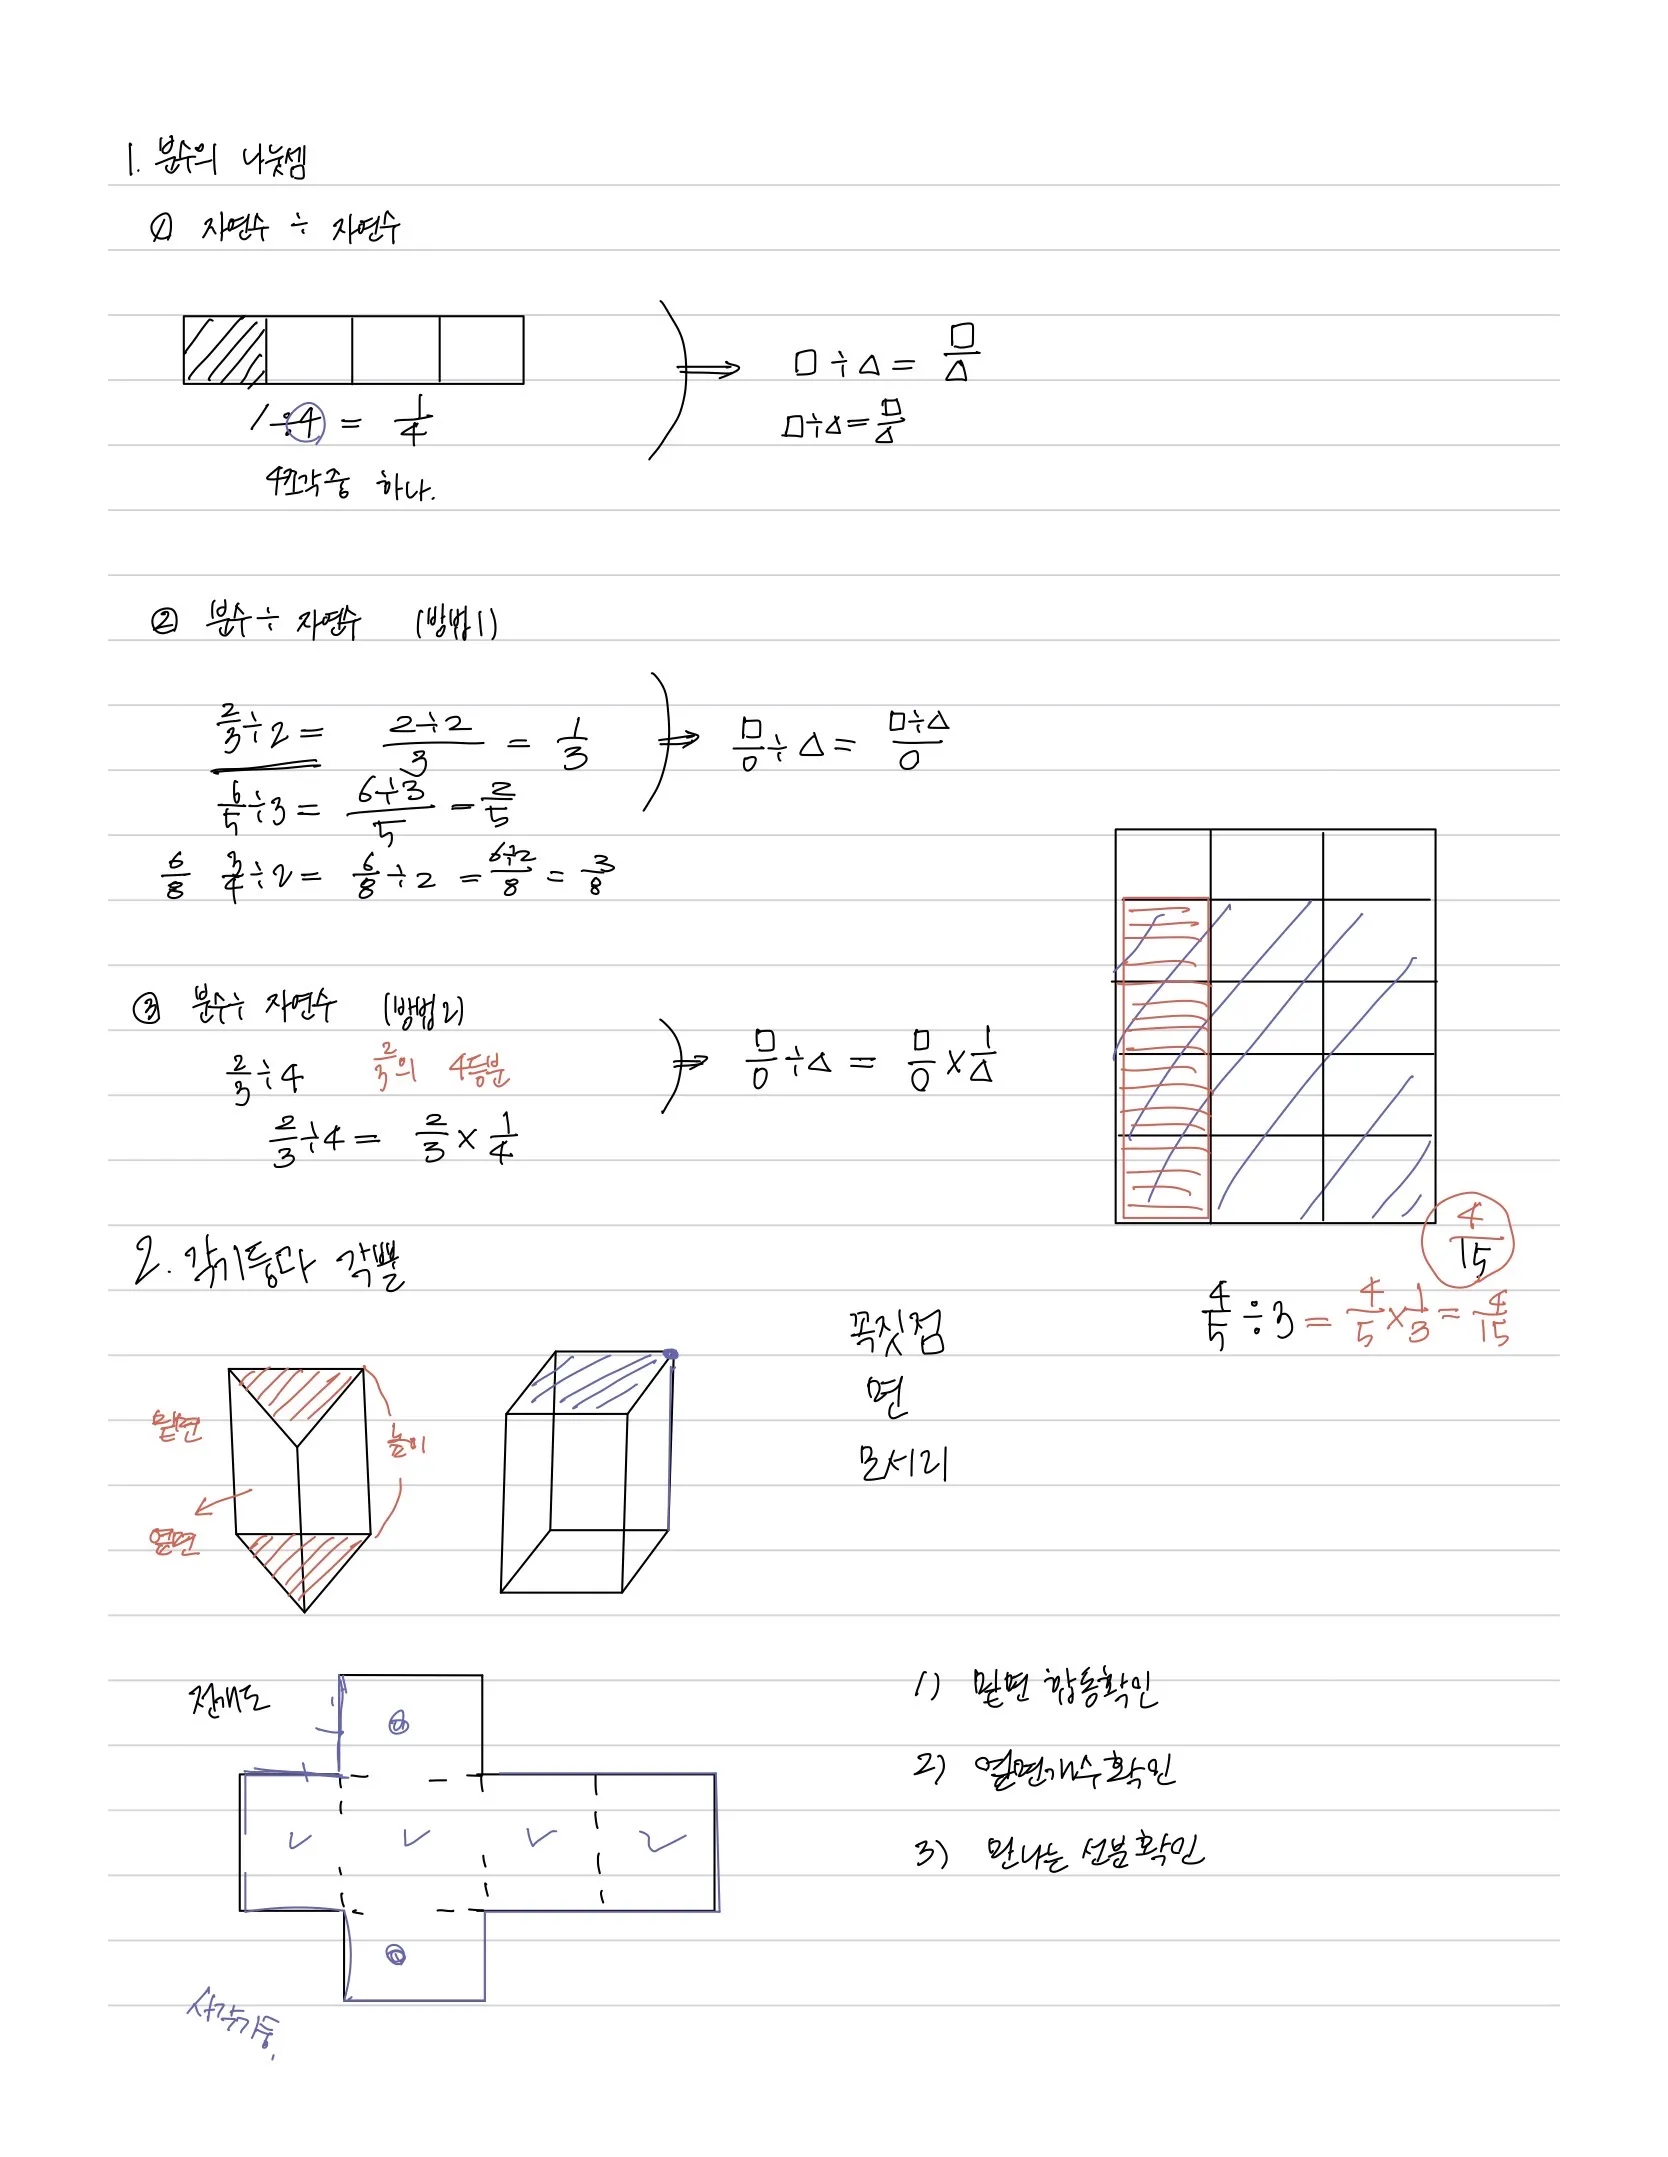 1. 분수의 나눗셈
① 자연수 ÷ 자연수
1÷4 = 1/4
4조각중 하나.
□ ÷ △ = □/△
□÷△=□/△
② 분수÷ 자연수 (방법1)
2/3÷2 = (2÷2)/3 = 1/3
□/○ ÷ △ = (□÷△)/○
6/5÷3 = (6÷3)/5 = 2/5
6/8 3/4÷2 = 6/8÷2 = (6÷2)/8 = 3/8
③ 분수÷ 자연수 (방법2)
2/3÷4 2/3의 4등분
2/3÷4 = 2/3 × 1/4
□/○÷△ = □/○ × 1/△
4/15
4/5÷3 = 4/5×1/3 = 4/15
2. 각기둥다 각뿔
밑면
높이
옆면
꼭짓점
면
모서리
전개도
1) 밑면 합동확인
2) 옆면개수확인
3) 만나는 선분확인
사각기둥.